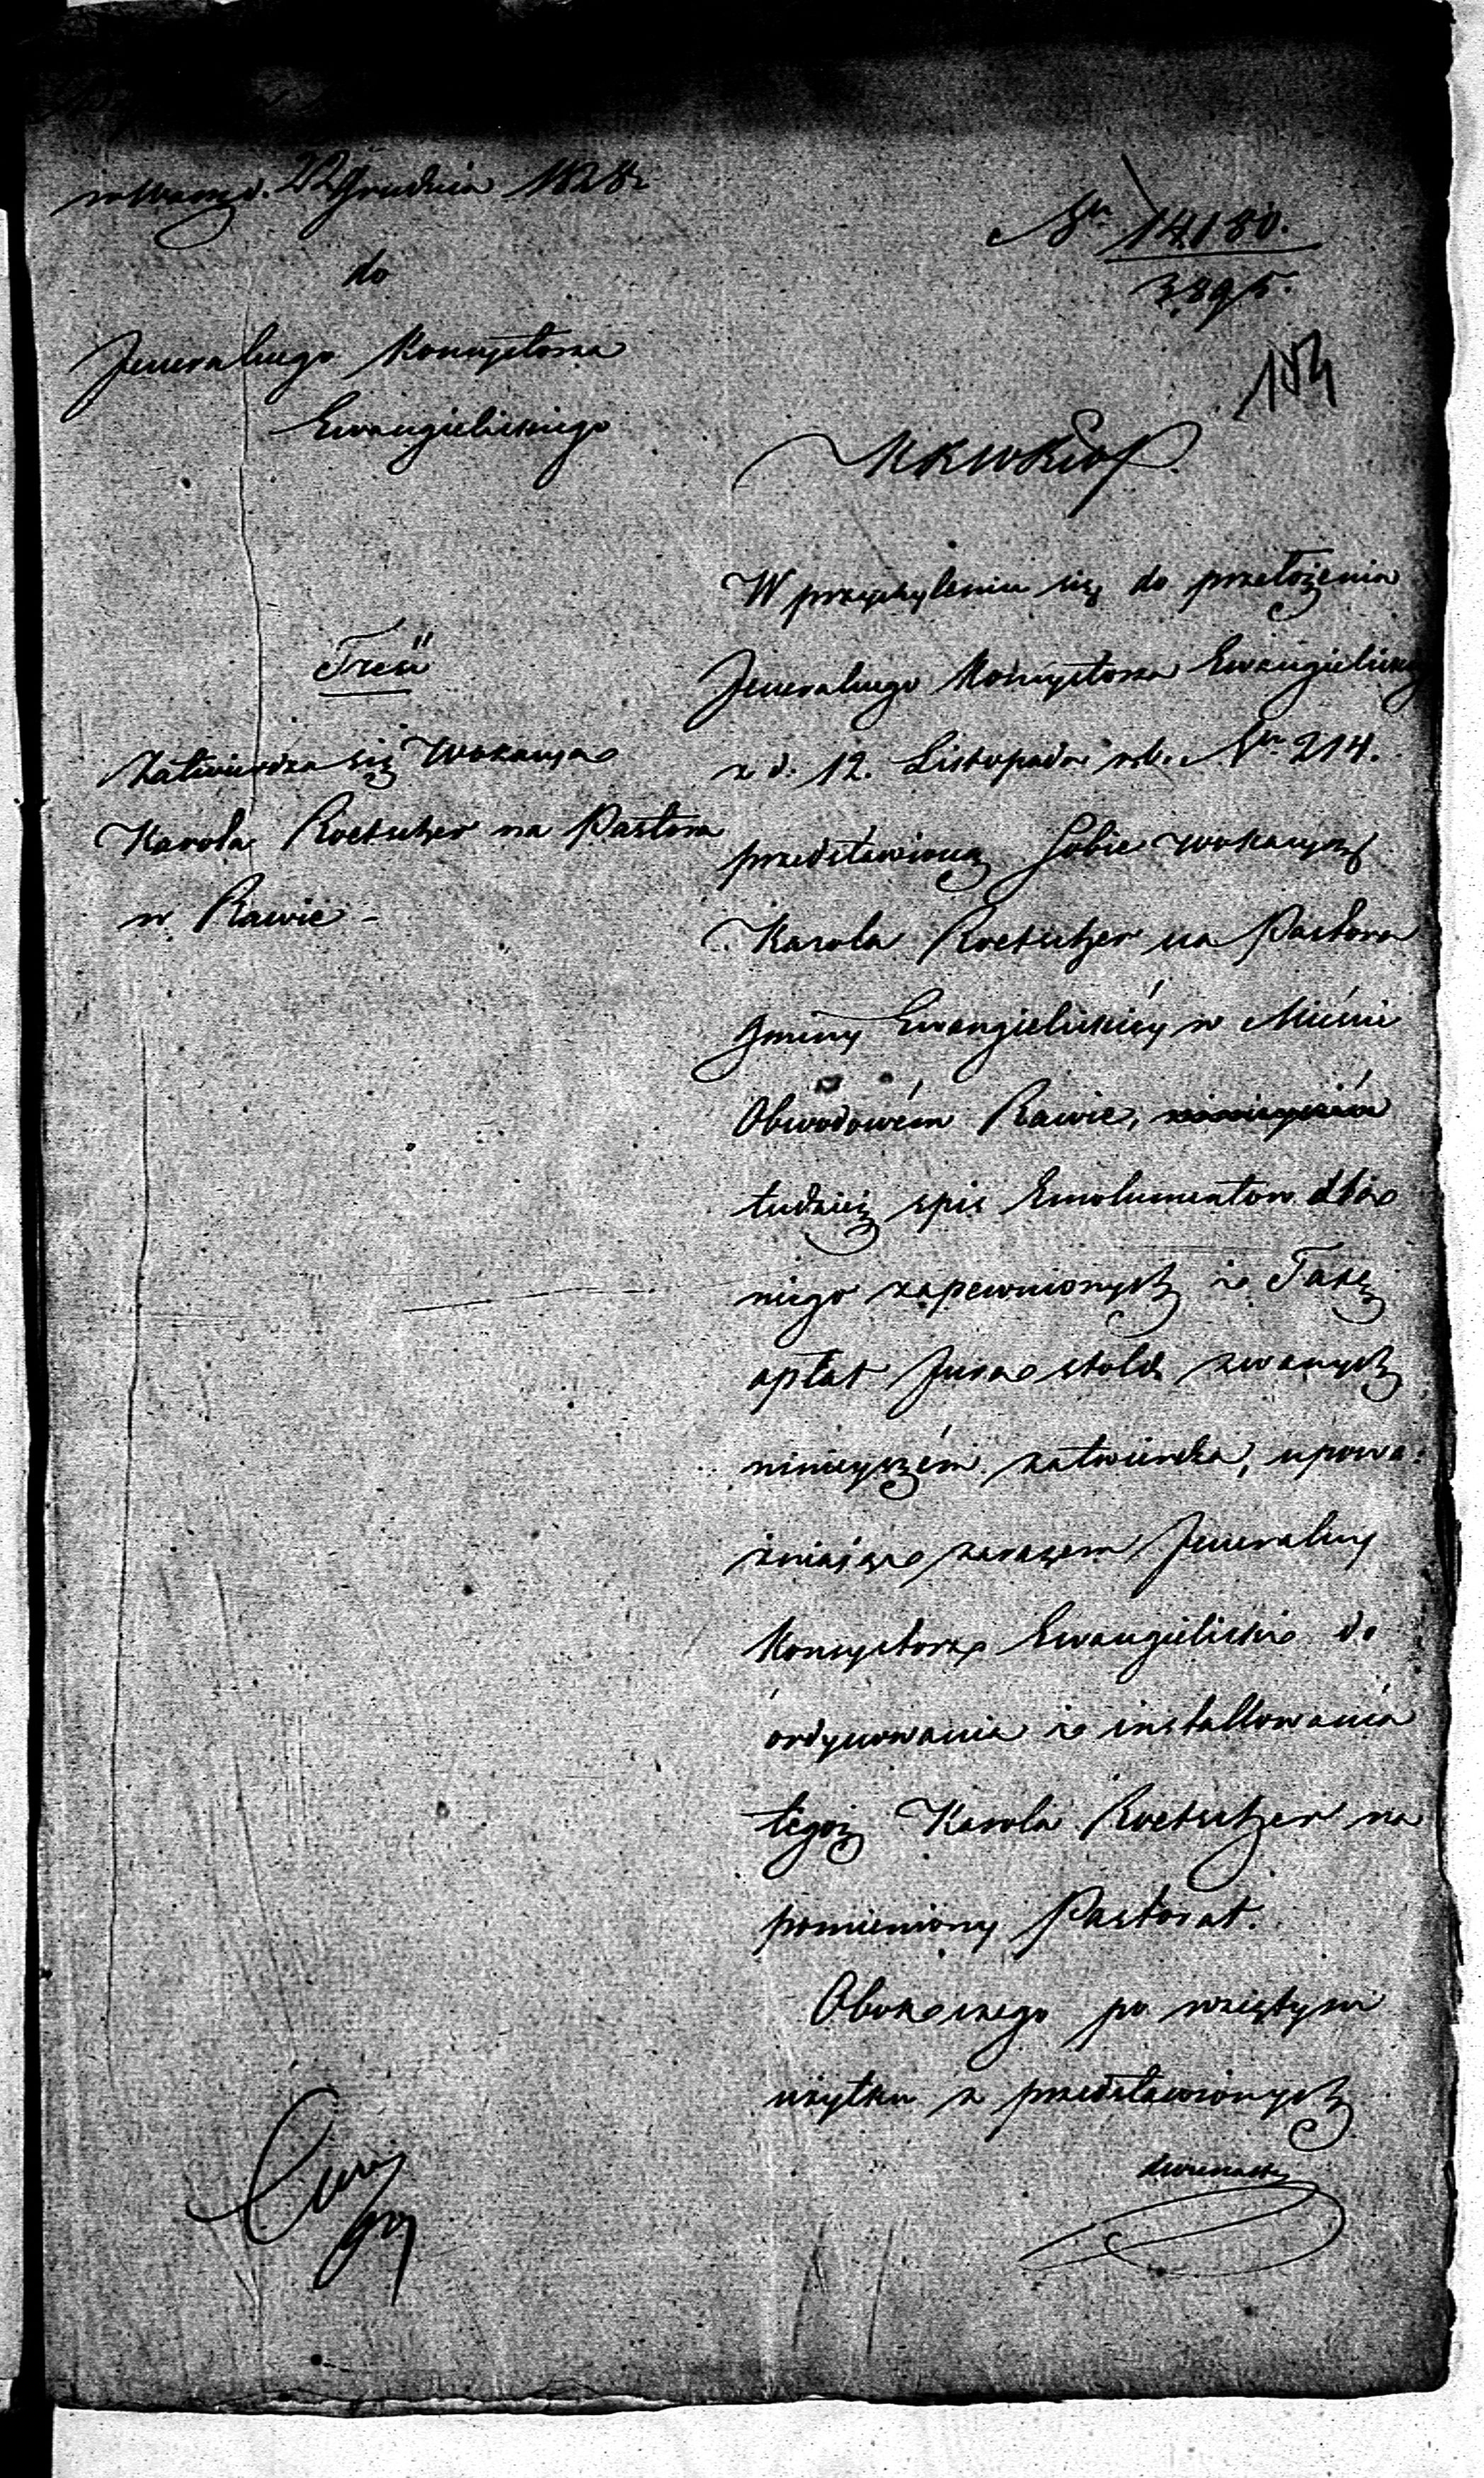 w Warsz. d. 22 Grudnia 1828 r
Nr 14180.
3895.
do
Jeneralnego Konsystorza
Ewangielickiego
103
MKWRiOP.
Treść
Zatwierdza się Wokacya
Karola Roetscher na Pastora
w Rawie -
W przychyleniu się do przełożenia
Jeneralnego Konsystorza Ewangielickiego
z d. 12. Listopada r.b. Nr 214.
przedstawioną Sobie wokacyą
Karola Roetscher na Pastora
Gminy Ewangielickiéy w Mieście
Obwodowém Rawie,
tudzież spis Emolumentow dla
niego zapewnionych i Taxę
opłat Jura stolae zwanych
ninieyszém zatwierdza, upowa-
żniaiąc zarazem Jeneralny
Konsystorz Ewangielicki do
ordynowania i installowania
tegoż Karola Roetscher na
pomieniony Pastorat.
Obok czego po wziętym
użytku z przedstawionych